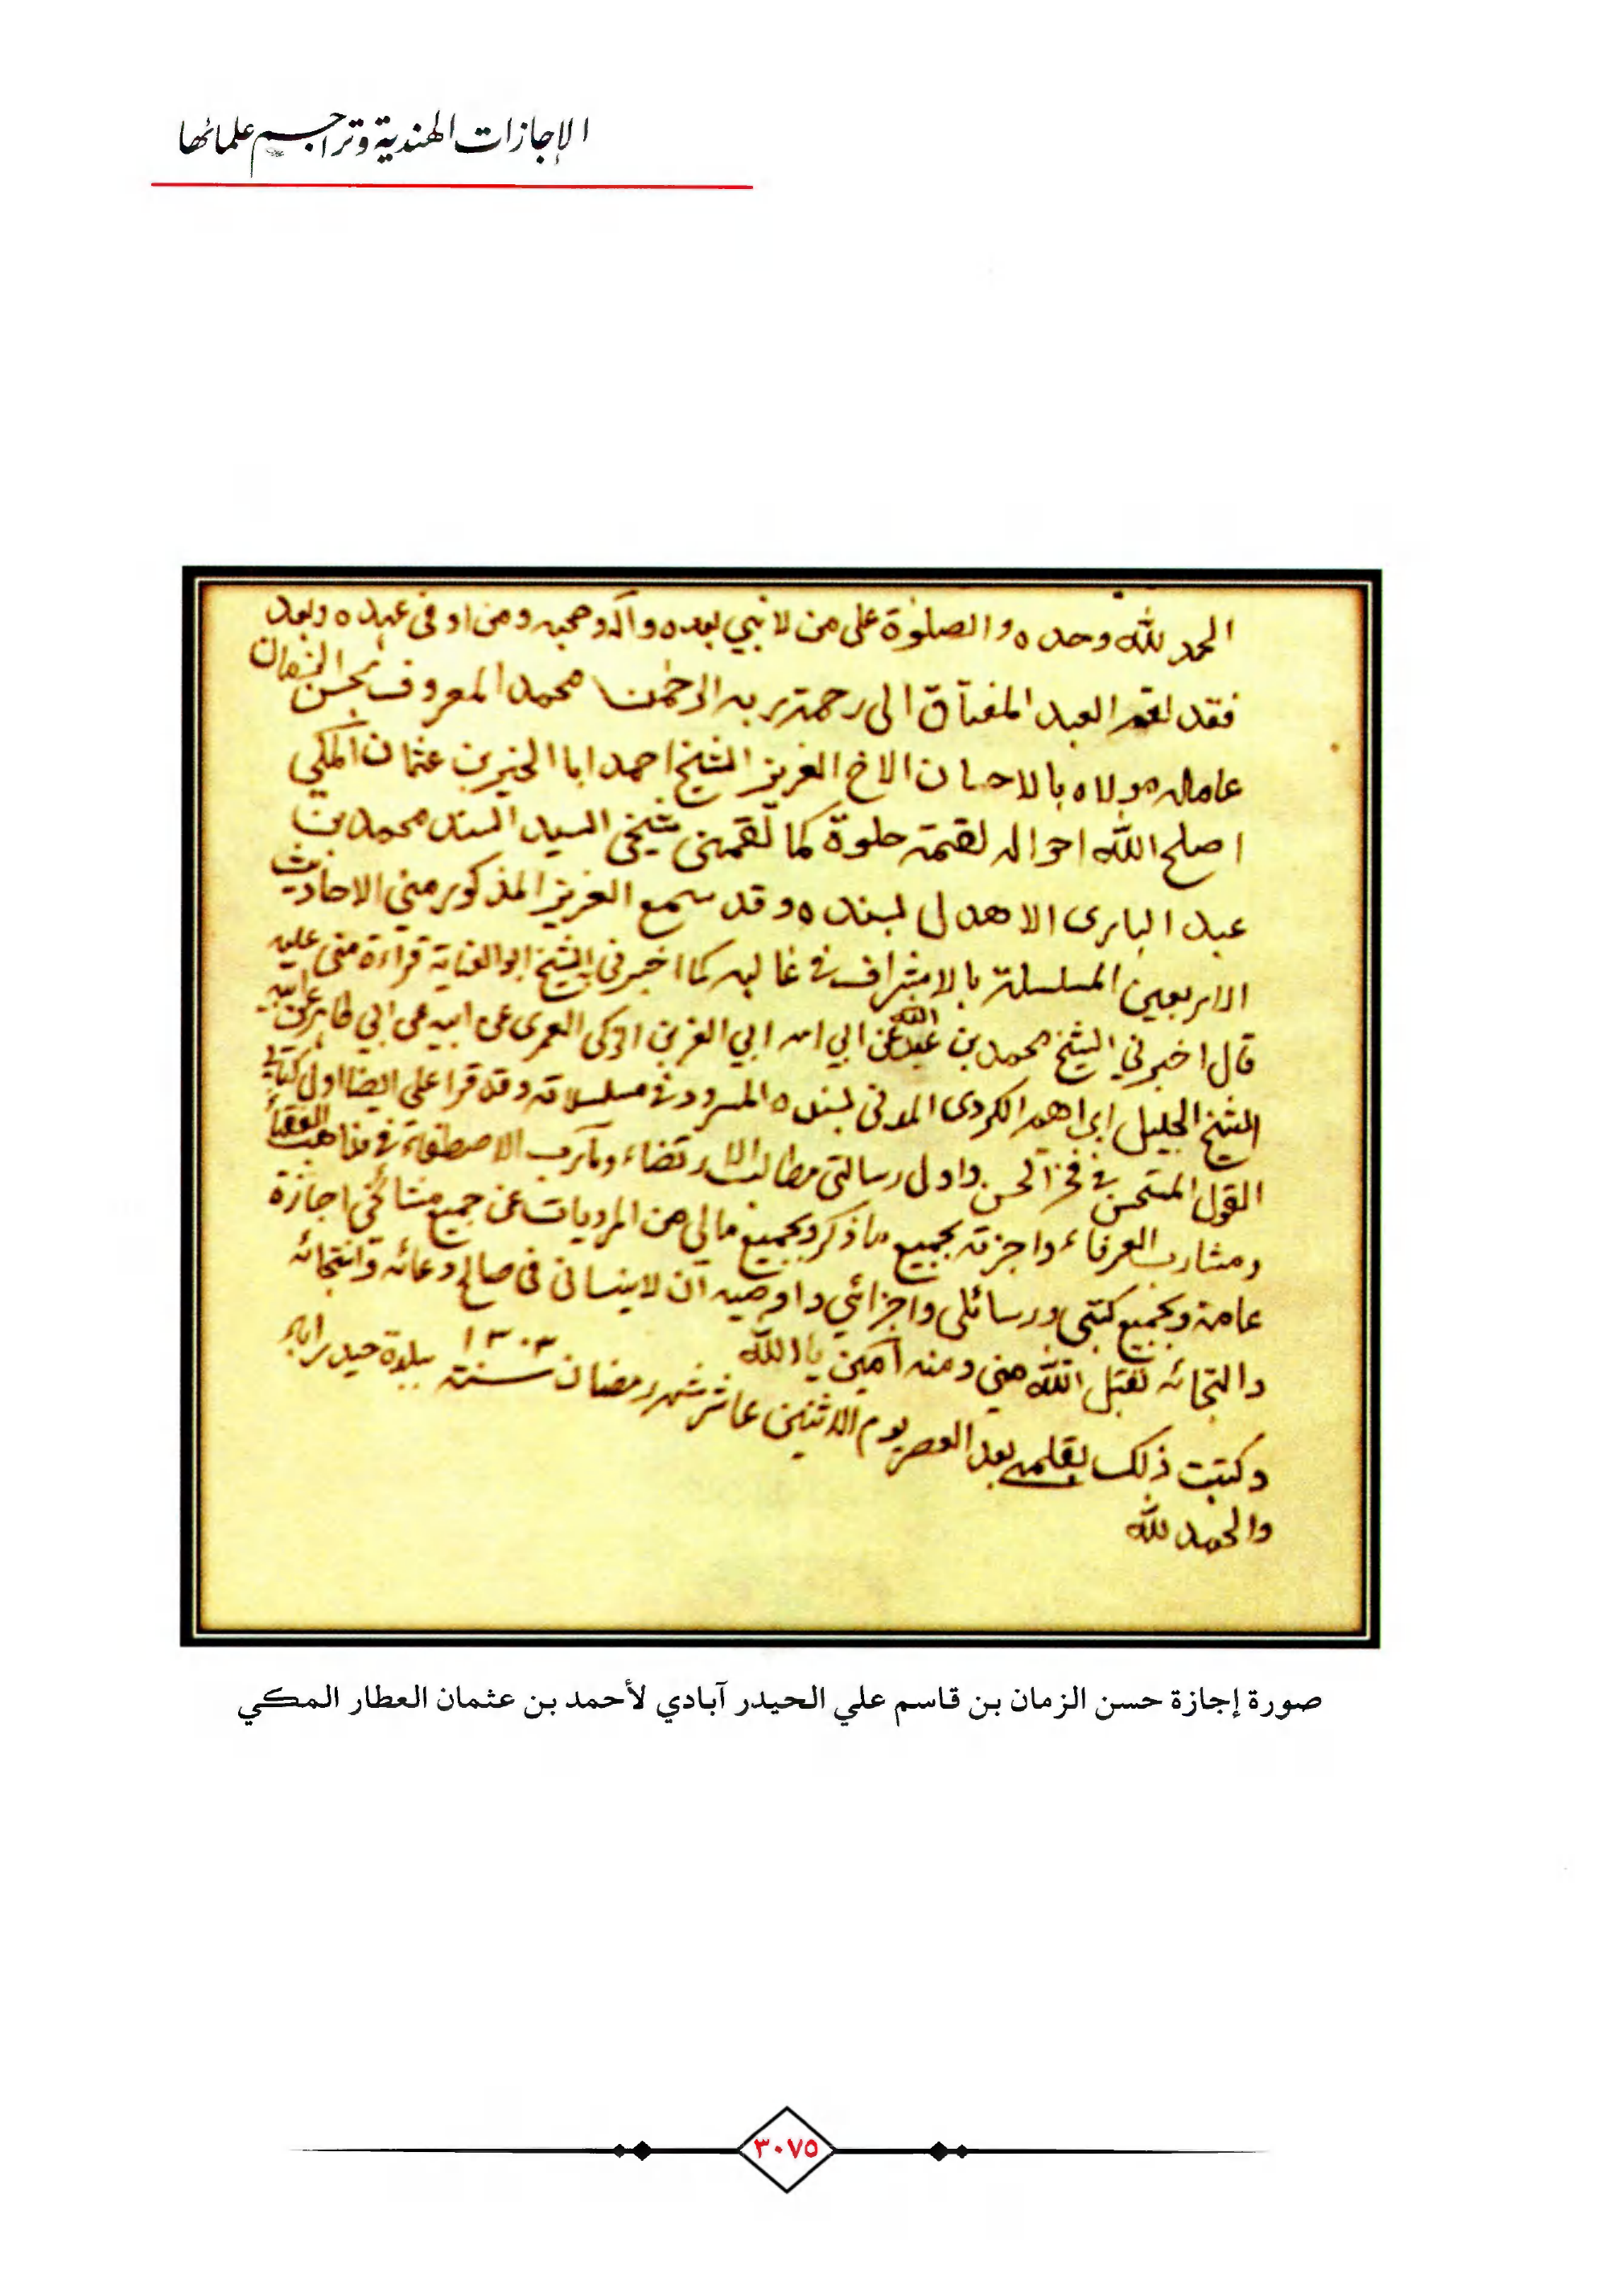 الإجازات الهندية وتراجم علمائها
الحمد لله وحده والصلوٰة على من لا نبي بعده وآله وصحبه ومن اوفى عهده وبعد
فقد لقم العبد المفتاق الى رحمة ربه الرحمٰن محمد المعروف بحسن الزمان
عامله مولاه بالاحسان الاخ العزيز الشيخ احمد ابا الخير بن عثمان المكي
اصلح الله احواله لقمة حلوة كما لقمني شيخي السيد السند محمد بن
عبد البارى الاهدل بسنده وقد سمع العزيز المذكور مني الاحاديث
الاربعين المسلسلة بالاشراف في غالبه كما اخبرني الشيخ ابو العناية قراءة مني عليه
قال اخبرني الشيخ محمد بن عبد الله عن ابي ابي العز بن الزكى العمرى عن ابيه عن ابي طاهر عن ابيه
الشيخ الجليل ابراهيم الكردى المدنى بسنده المسرود في مسلسلاته وقد قرا على ايضا اول كتابي
القول المستحسن في فخر الحسن واول رسالتى مطالب الارتضاء ومآرب الاصطفاء في مذاهب الفقهاء
ومشارب العرفاء واجزته بجميع ما ذكر وبجميع مالي من المرويات عن جميع مشائخي اجازة
عامة وبجميع كتبي ورسائلى واجزائي واوصيه ان لا ينسانى فى صالح دعائه وانتجائه
والتجائه تقبل الله مني ومنه آمين يا الله
وكتبت ذلك بقلمي بعد العصر يوم الاثنين عاشر شهر رمضان سنة ١٣٠٣ ببلدة حيدراباد
والحمد لله
صورة إجازة حسن الزمان بن قاسم علي الحيدر آبادي لأحمد بن عثمان العطار المكي
٣٠٧٥